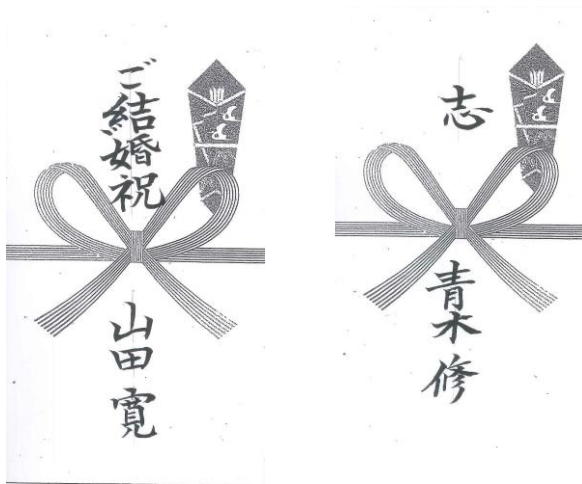 ご結婚祝
山田寛
志
青木修